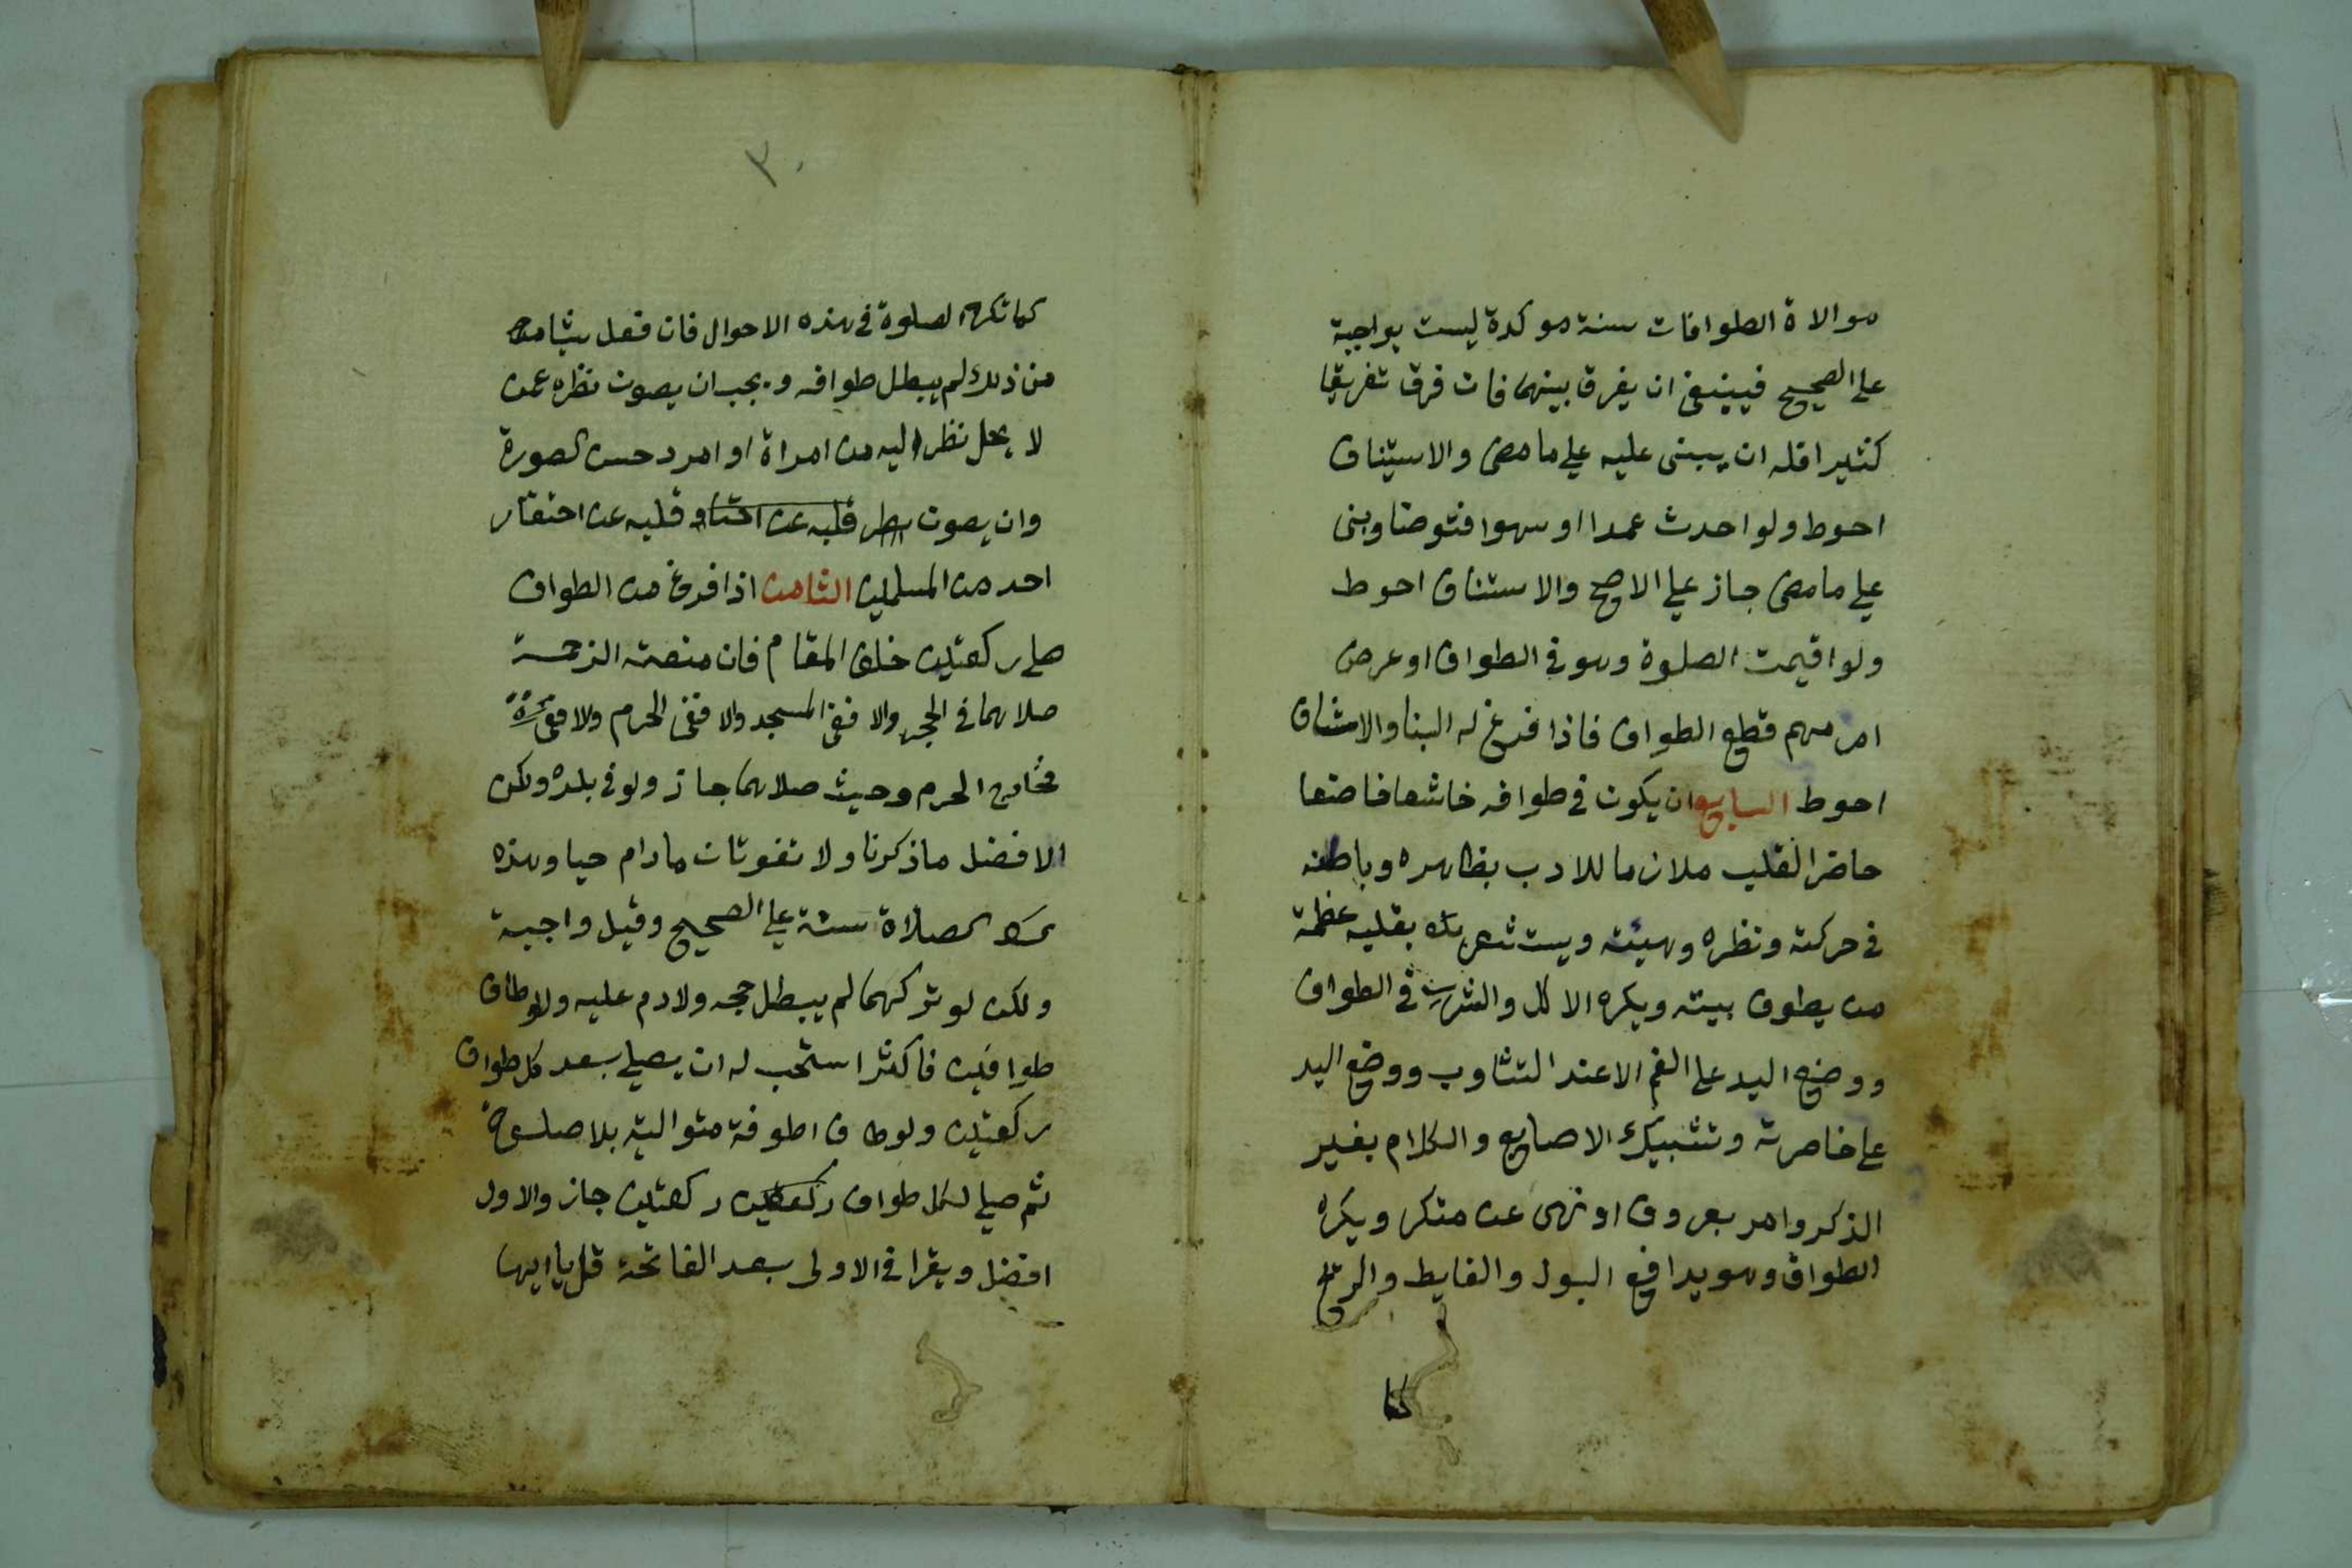 موالاة الطوافات سنة موكدة ليست بواجبة
علي الصحيح فيينبغي ان يفرق بينهما فان فرق تفريقا
كثيرا فله ان يبنى عليه علي ما مضى والاستيناف
احوط ولو احدث عمدا او سهوا فتوضا وبنى
علي ما مضى جاز علي الاصح والاستناف احوط
ولو اقيمت الصلوة وهو في الطواف او عرض
امر مهم قطع الطواف فاذا فرغ له البنا والاستناف
احوط السابع ان يكون في طوافه خاشعا خاضعا
حاضر القلب ملازما للادب بظاهره وباطنه
في حركته ونظره وهيئته ويستشعر بقلبه عظمة
من يطوف ببيته ويكره الاكل والشرب في الطواف
ووضع اليد علي الفم الا عند التثاوب ووضع اليد
علي خاصرته وتشبيك الاصابع والكلام بغير
الذكر وامر بعروف او نهى عن منكر ويكره
الطواف وهو يدافع البول والغايط والريح
كما
٣٠
كما تكره الصلوة في هذه الاحوال فان فعل شيا
من ذلك لم يبطل طوافه ويجب ان يصون نظره عمن
لا يحل نظر اليه من امراة او امرد حسن الصورة
وان يصون قلبه عن وقلبه عن احتقار
احد من المسلمين الثامن اذا فرغ من الطواف
صلي ركعتين خلف المقام فان منعته الزحمة
صلاهما في الحجر والا ففي المسجد والا ففي الحرم والا ففي
خارج الحرم وحيث صلاهما جاز ولو في بلده ولكن
الافضل ما ذكرنا ولا تفوتان ما دام حيا وهذه
الصلاة سنة علي الصحيح وقيل واجبة
ولكن لو تركهما لم يبطل حجه ولا دم عليه ولو طاف
طوافين فاكثر استحب له ان يصلي بعد كل طواف
ركعتين ولو طاف اطوفة متوالية بلا صلوة
ثم صلي لكل طواف ركعتين ركعتين جاز والاول
افضل ويقرا في الاولى بعد الفاتحة قل يا ايها